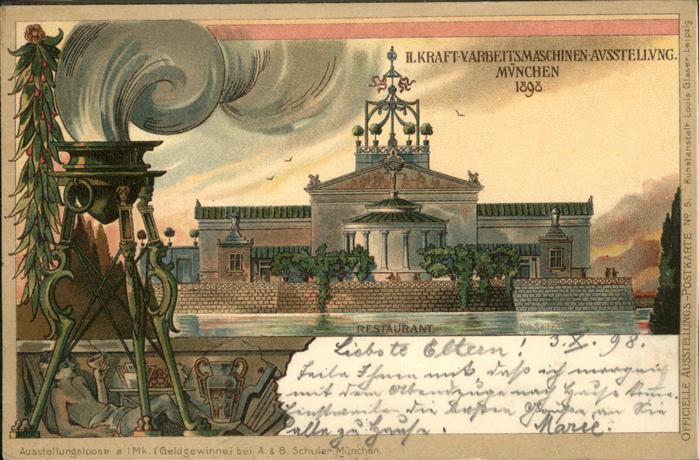 II. KRAFT-V.ARBEITSMASCHINEN-AVSSTELLVNG.
MVNCHEN
1898
RESTAURANT.
Liebste Eltern! 3.X.98.
Teile Ihnen mit, daß ich morgen
mit dem Abendzuge nach Hause komme.
Einstweilen die besten Grüße an Sie
alle zu Hause. Marie.
Ausstellungsloose a 1 Mk. (Geldgewinne) bei A. & B. Schuler München.
OFFICIELLE AUSSTELLUNGS-POSTKARTE No 5. Kunstanstalt Louis Glaser, Leipzig.